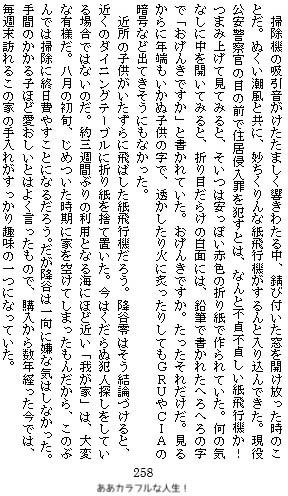 掃除機の吸引音がけたたましく響きわたる中、錆び付いた窓を開け放った時のこ
とだ。ぬくい潮風と共に、妙ちくりんな紙飛行機がするんと入り込んできた。現役
公安警察官の目の前で住居侵入罪を犯すとは、なんと不貞不貞しい紙飛行機か！
つまみ上げて見てみると、そいつは安っぽい赤色の折り紙で作られていた。何の気
なしに中を開いてみると、折り目だらけの白面には、鉛筆で書かれたへろへろの字
で「おげんきですか」と書かれていた。おげんきですか。たったそれだけだ。見る
からに年端もいかぬ子供の字で、透かしたり火に炙ったりしてもＧＲＵやＣＩＡの
暗号など出てきそうにもなかった。
　近所の子供がいたずらに飛ばした紙飛行機だろう。降谷零はそう結論づけると、
近くのダイニングテーブルに折り紙を捨て置いた。今はくだらぬ犯人探しをしてい
る場合ではないのだ。約三週間ぶりの利用となる海にほど近い「我が家」は、大変
な有様だ。八月の初旬、じめついた時期に家を空けてしまったもんだから、このぶ
んでは掃除に終日費やすことになるだろう。だが降谷は一向に嫌な気はしなかった。
手間のかかる子ほど愛おしいとはよく言ったもので、購入から数年経った今では、
毎週末訪れるこの家の手入れがすっかり趣味の一つになっていた。
258
ああカラフルな人生！